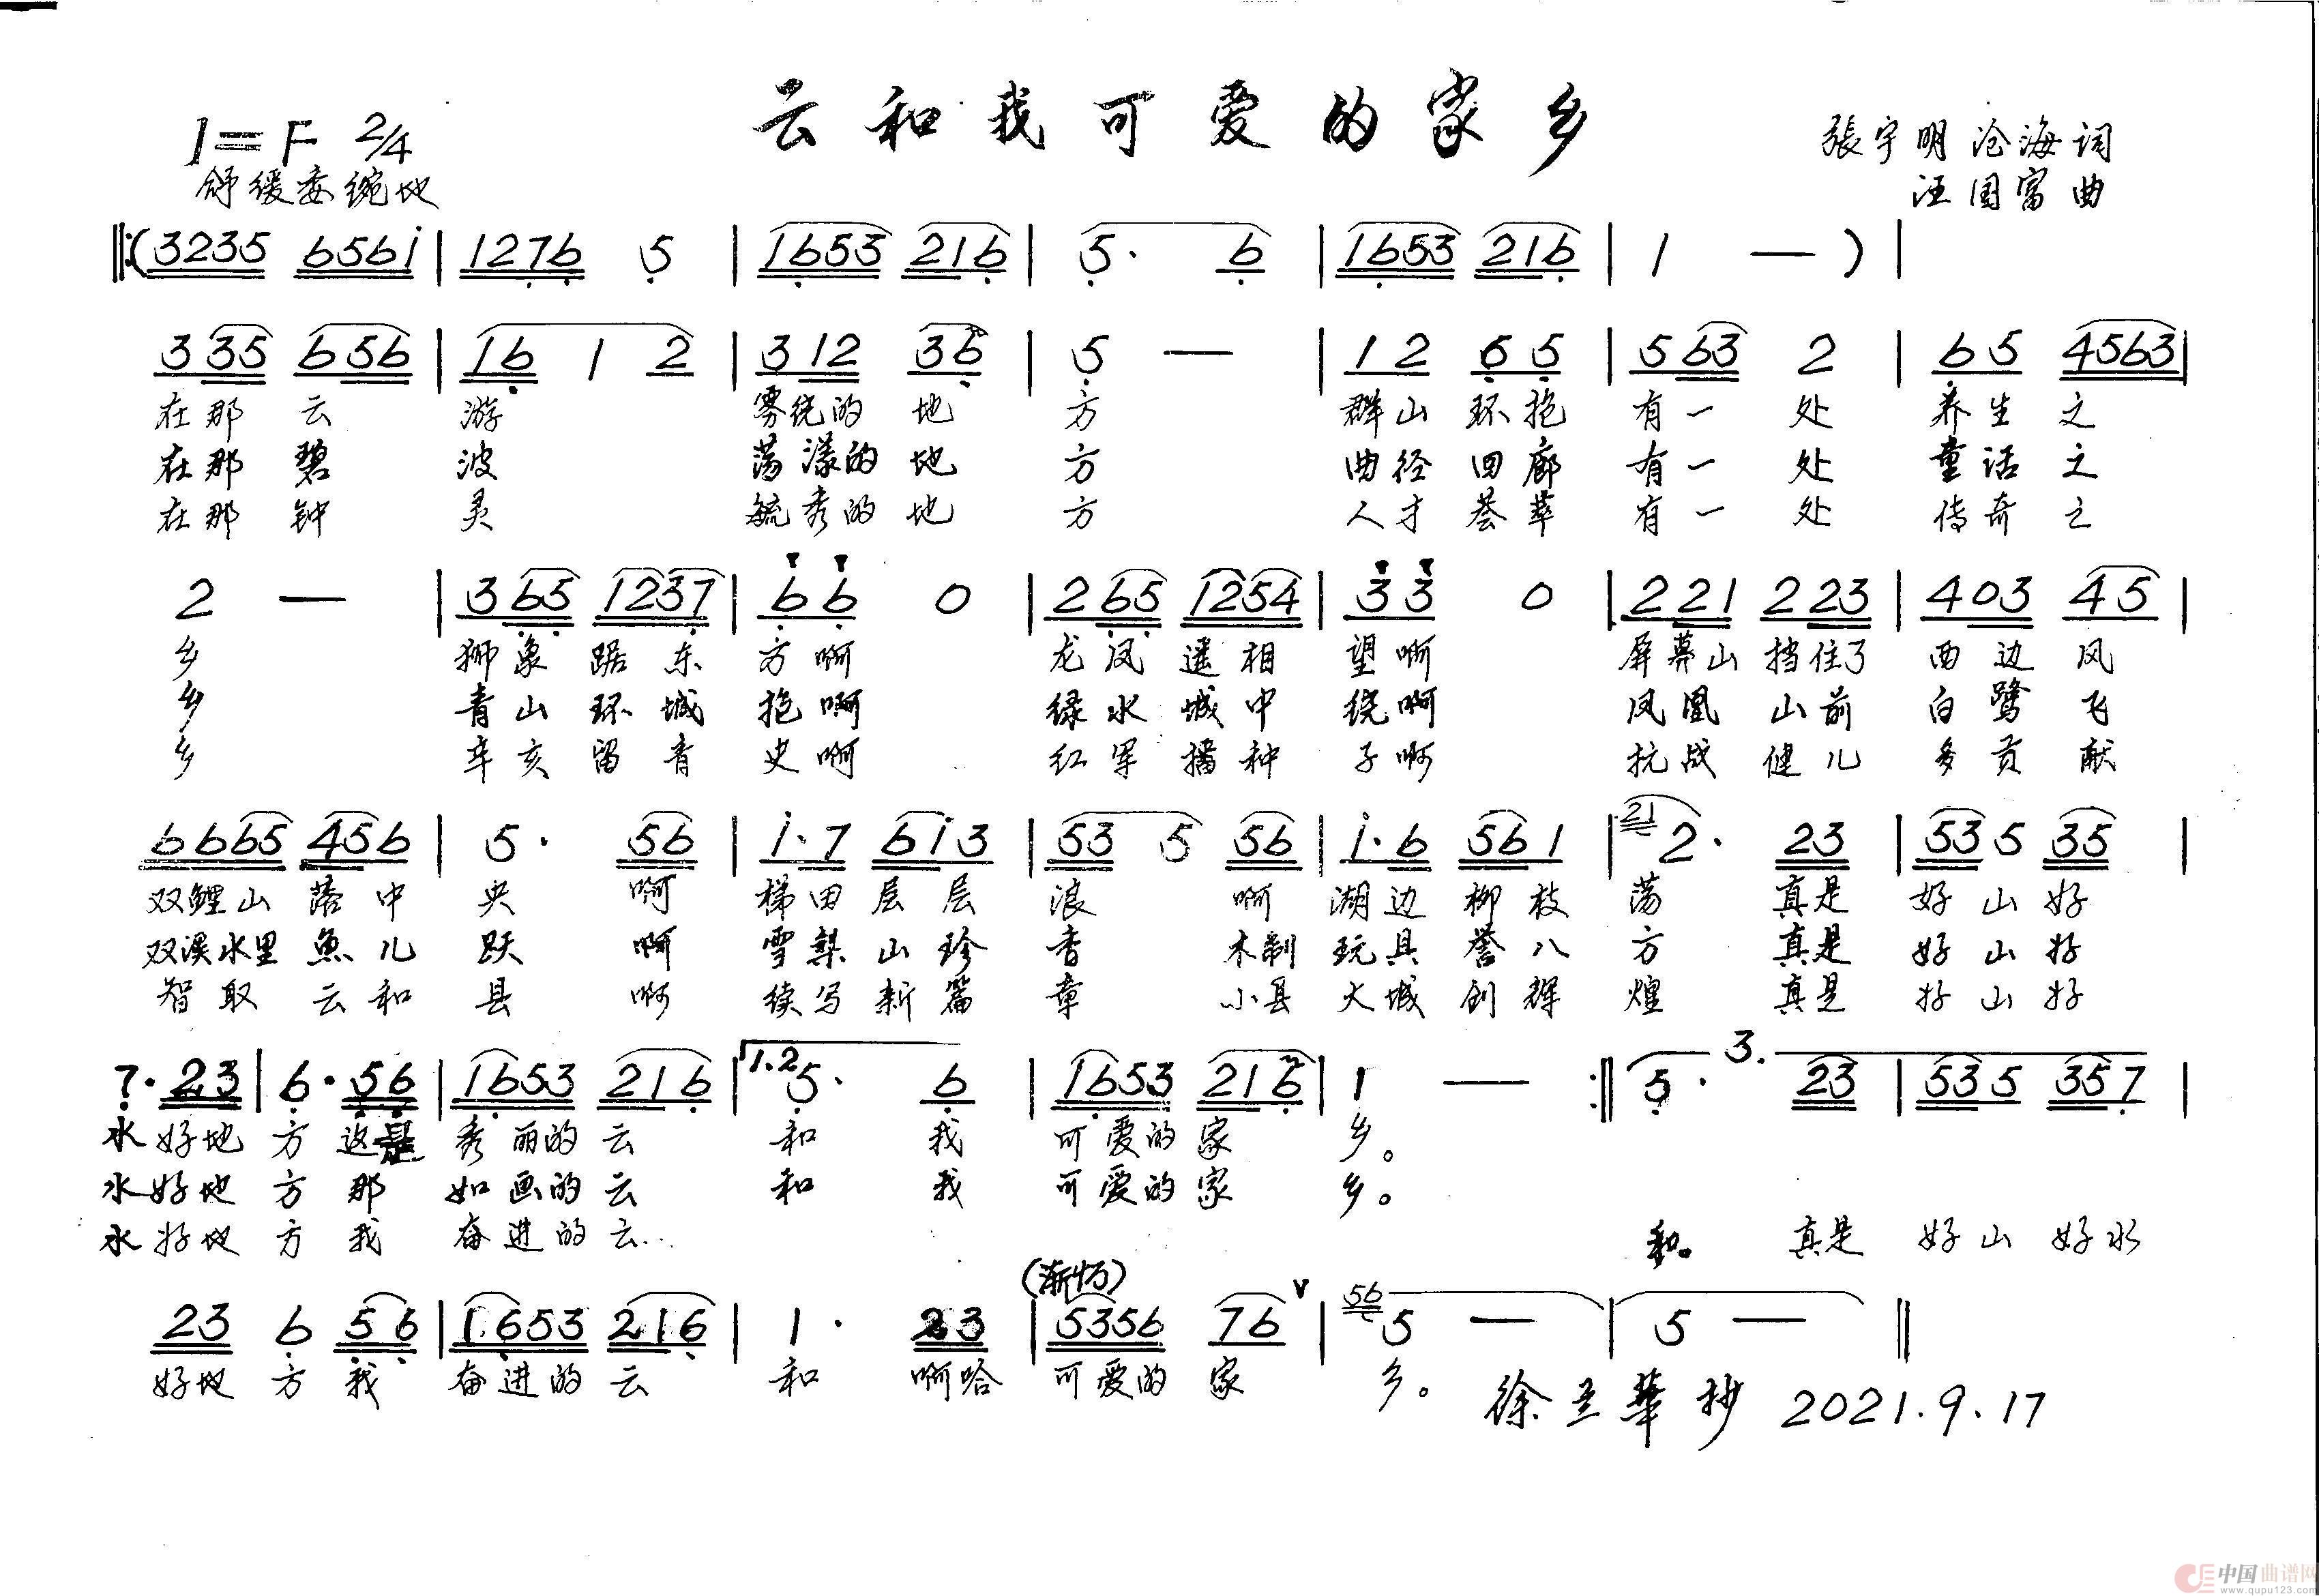 云和我可爱的家乡
1=F 2/4
張宇明 沧海词
舒缓委婉地
汪国富曲
‖:(3235 656i | 1276 5 | 1653 216 | 5· 6 | 1653 216 | 1 — ) |
335 656 | 16 1 2 | 312 36 | 5 — | 12 65 | 563 2 | 65 4563 |
在那云游雾绕的地方群山环抱有一处养生之
在那碧波荡漾的地方曲径回廊有一处童话之
在那钟灵毓秀的地方人才荟萃有一处传奇之
2 — | 365 1237 | 66 0 | 265 1254 | 33 0 | 221 223 | 403 45 |
乡狮象踞东方啊龙凤遥相望啊屏幕山挡住了西边风
乡青山环城抱啊绿水城中绕啊凤凰山前白鹭飞
乡辛亥留青史啊红军播种子啊抗战健儿多贡献
6665 456 | 5· 56 | i·7 6i3 | 53 5 56 | i·6 561 | 21 2· 23 | 53 5 35 |
双鲤山落中央啊梯田层层浪啊湖边柳枝荡真是好山好
双溪水里魚儿跃啊雪梨山珍香木制玩具誉八方真是好山好
智取云和县啊续写新篇章小县大城创辉煌真是好山好
7·23 | 6·56 | 1653 216 | 1.2 5· 6 | 1653 216 | 1 — :‖ 3. 5· 23 | 535 357 |
水好地方这是秀丽的云和我可爱的家乡。
水好地方那如画的云和我可爱的家乡。
水好地方我奋进的云和。真是好山好水
(渐慢)
23 6 56 | 1653 216 | 1· 23 | 5356 76 ∨ | 56 5 — | 5 — ‖
好地方我奋进的云和啊哈可爱的家乡。
徐立華抄 2021.9.17
中国曲谱网
www.qupu123.com